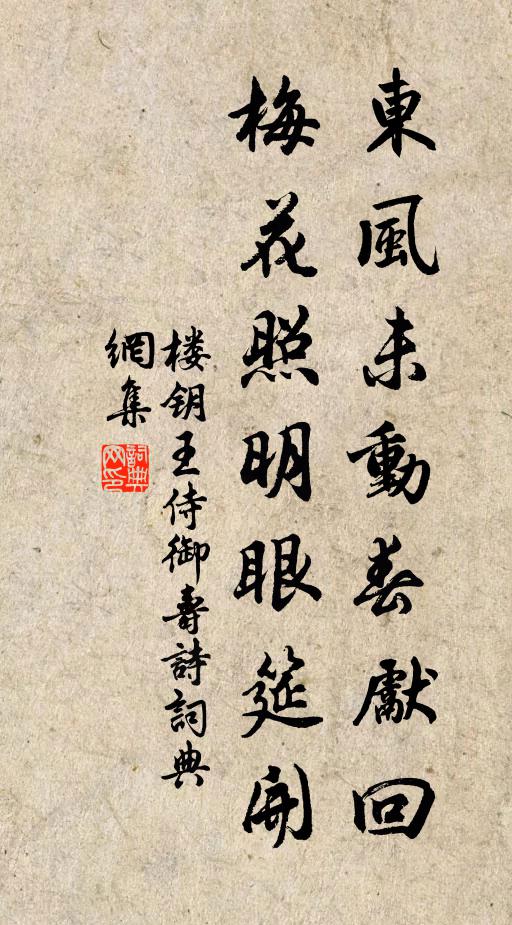 東風未動春獻回
梅花照明眼筵開
楼钥王侍御壽詩詞典
網集
詞典
网印